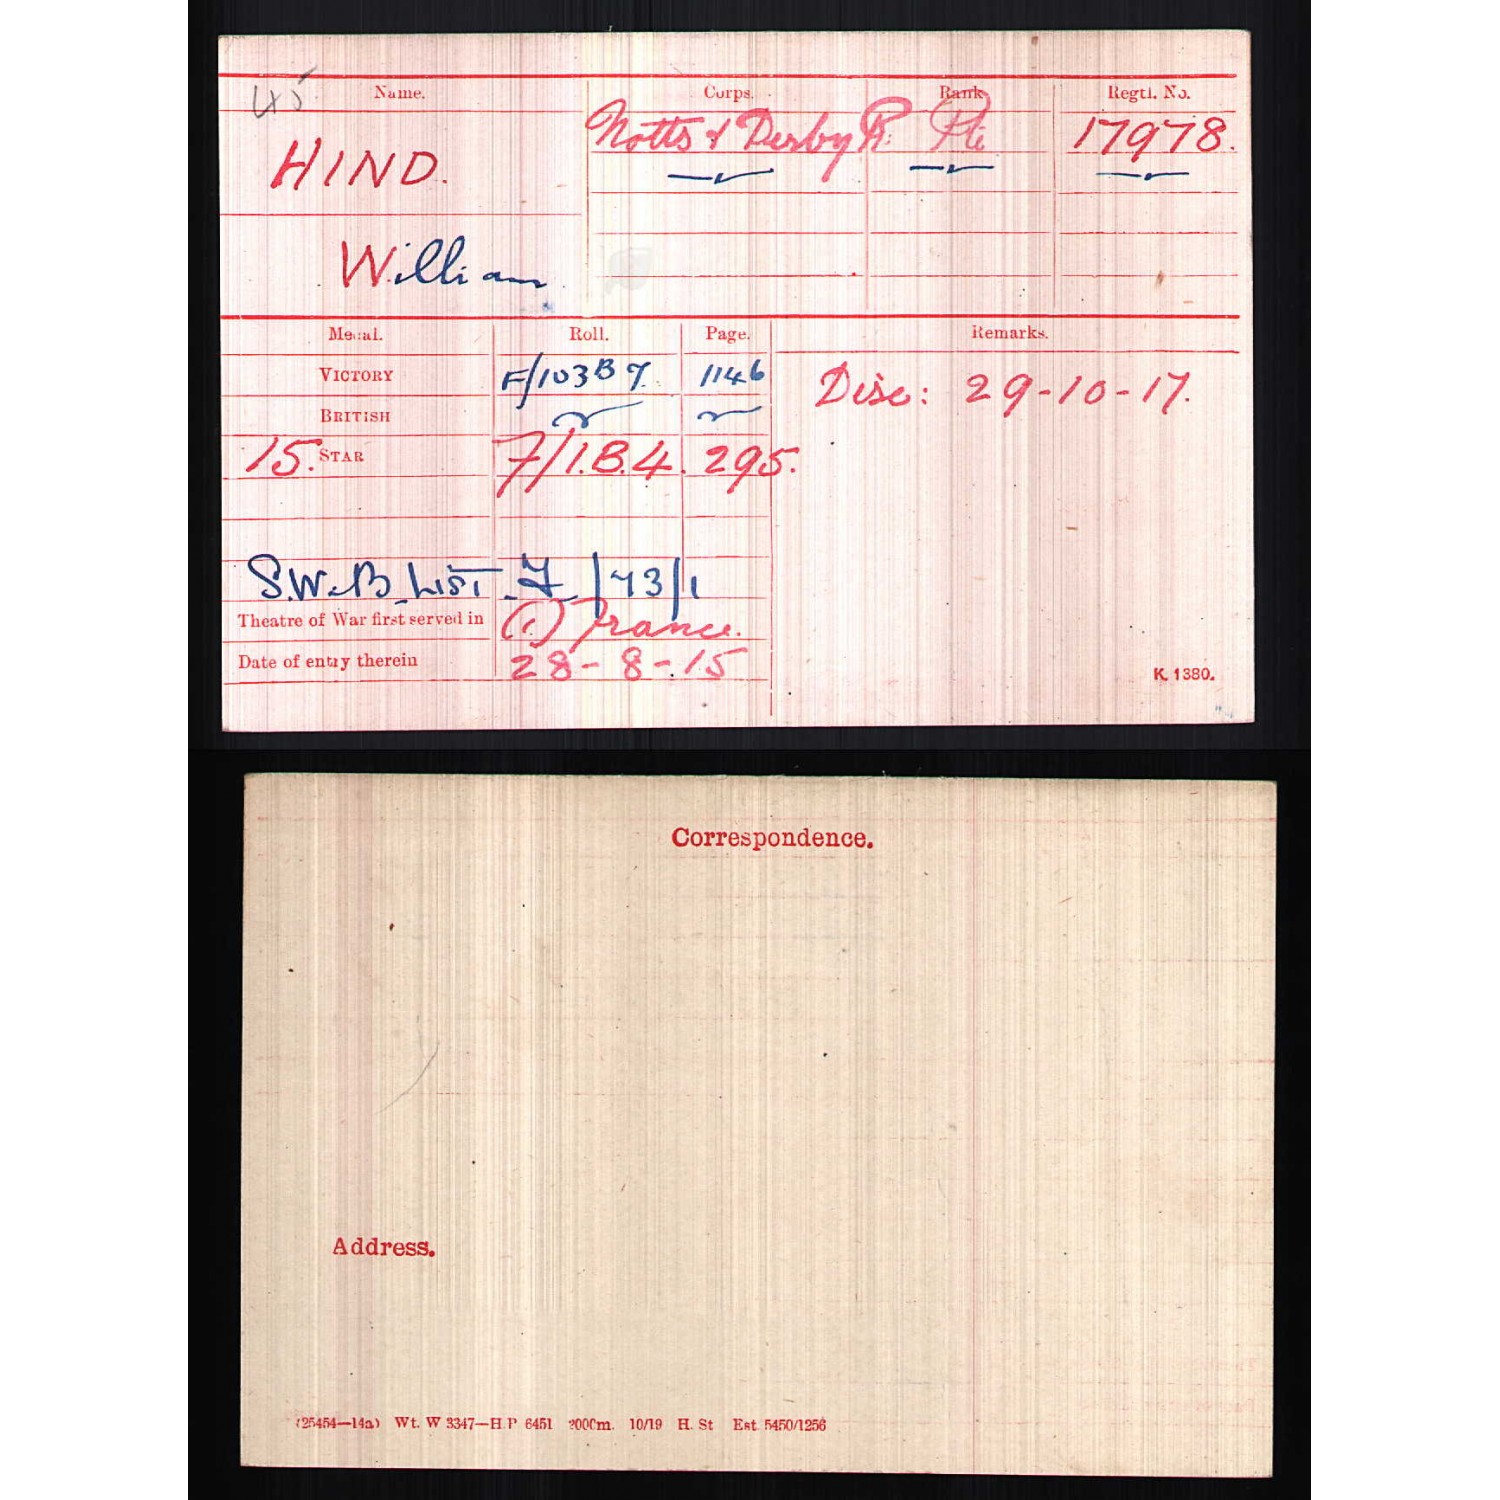 45
Name. Corps. Rank Regtl. No.
HIND. Notts & Derby R. Pte 17978.
William
Medal. Roll. Page. Remarks.
VICTORY F/103B7. 1146 Disc: 29-10-17.
BRITISH
15. STAR F/1.B.4. 295.
S.W.B LIST F/73/1
Theatre of War first served in (1) France.
Date of entry therein 28-8-15
K. 1380.
Correspondence.
Address.
(25454—14a) Wt. W 3347—H.P 6451 2000m. 10/19 H. St Est. 5450/1256